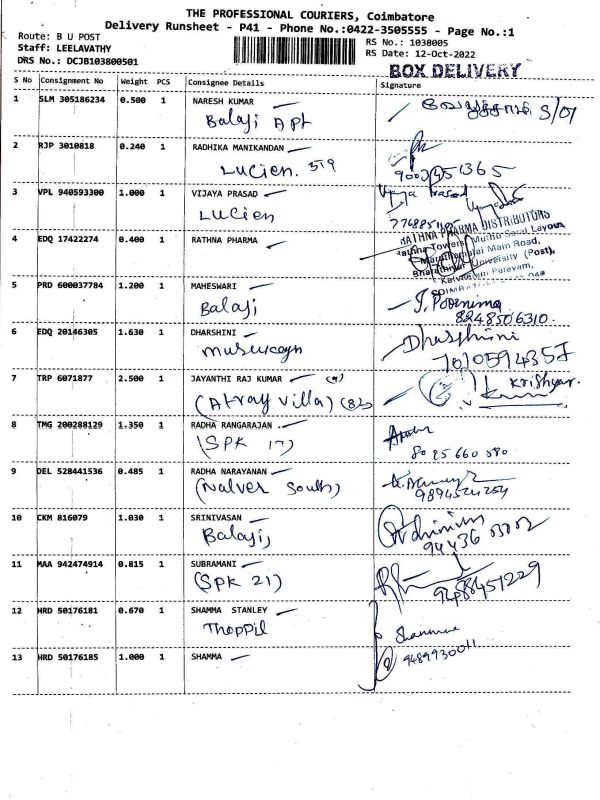 THE PROFESSIONAL COURIERS, Coimbatore
Delivery Runsheet - P41 - Phone No.:0422-3505555 - Page No.:1
Route: B U POST
RS No.: 1038005
Staff: LEELAVATHY
RS Date: 12-Oct-2022
DRS No.: DCJB103800501
BOX DELIVERY
S No Consignment No Weight PCS Consignee Details Signature
1 SLM 305186234 0.500 1 NARESH KUMAR
Balaji Apt
2 RJP 3010818 0.240 1 RADHIKA MANIKANDAN
Lucien. 319
3 VPL 940593300 1.000 1 VIJAYA PRASAD
Lucien
4 EDQ 17422274 0.400 1 RATHNA PHARMA
RATHNA PHARMA DISTRIBUTORS
Rathna Towers, Mutho Layout
Marathamalai Main Road,
Bharathiar University (Post),
5 PRD 600037784 1.200 1 MAHESWARI
Balaji J. Poornima
8248506310.
6 EDQ 20146305 1.630 1 DHARSHINI Dharshini
7 TRP 6071877 2.500 1 JAYANTHI RAJ KUMAR
(Atray Villa) (82)
8 TMG 200288129 1.350 1 RADHA RANGARAJAN
(SPK 17)
9 DEL 528441536 0.485 1 RADHA NARAYANAN
(Nalver South) 9894524254
10 CKM 816079 1.030 1 SRINIVASAN
Balaji,
11 MAA 942474914 0.815 1 SUBRAMANI
(SPK 21) 9488451229
12 HRD 50176181 0.670 1 SHAMMA STANLEY
Thoppil
13 HRD 50176185 1.000 1 SHAMMA 9489930011